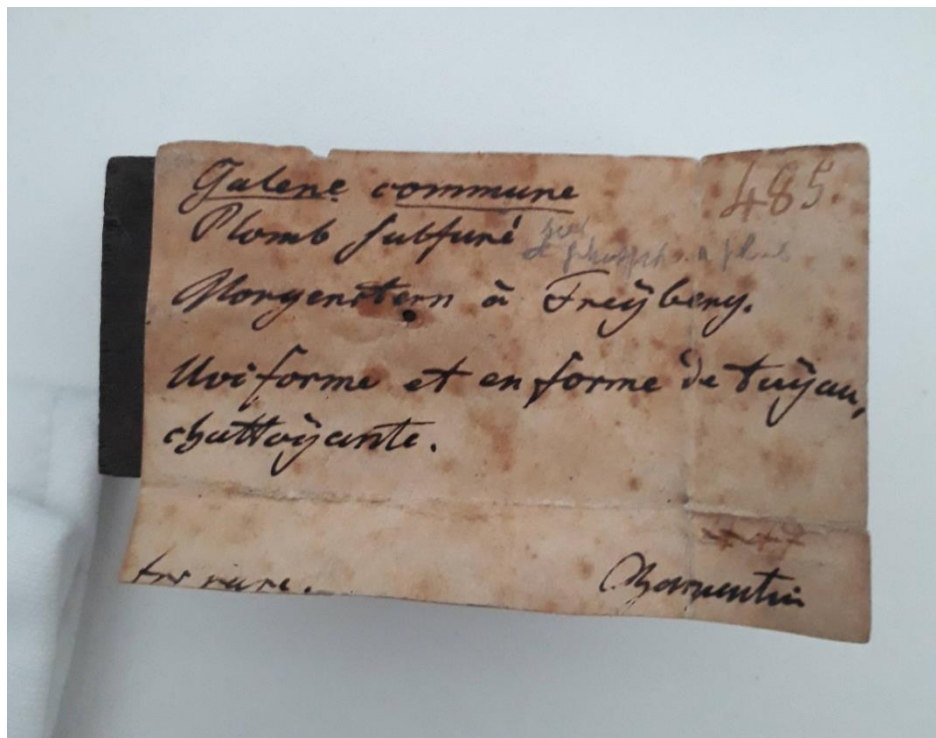 485.
Galene commune
Plomb sulfuré
Morgenstern à Freÿberg.
Uviforme et en forme de tuÿau,
chattoÿante.
très rare.
Charpentier